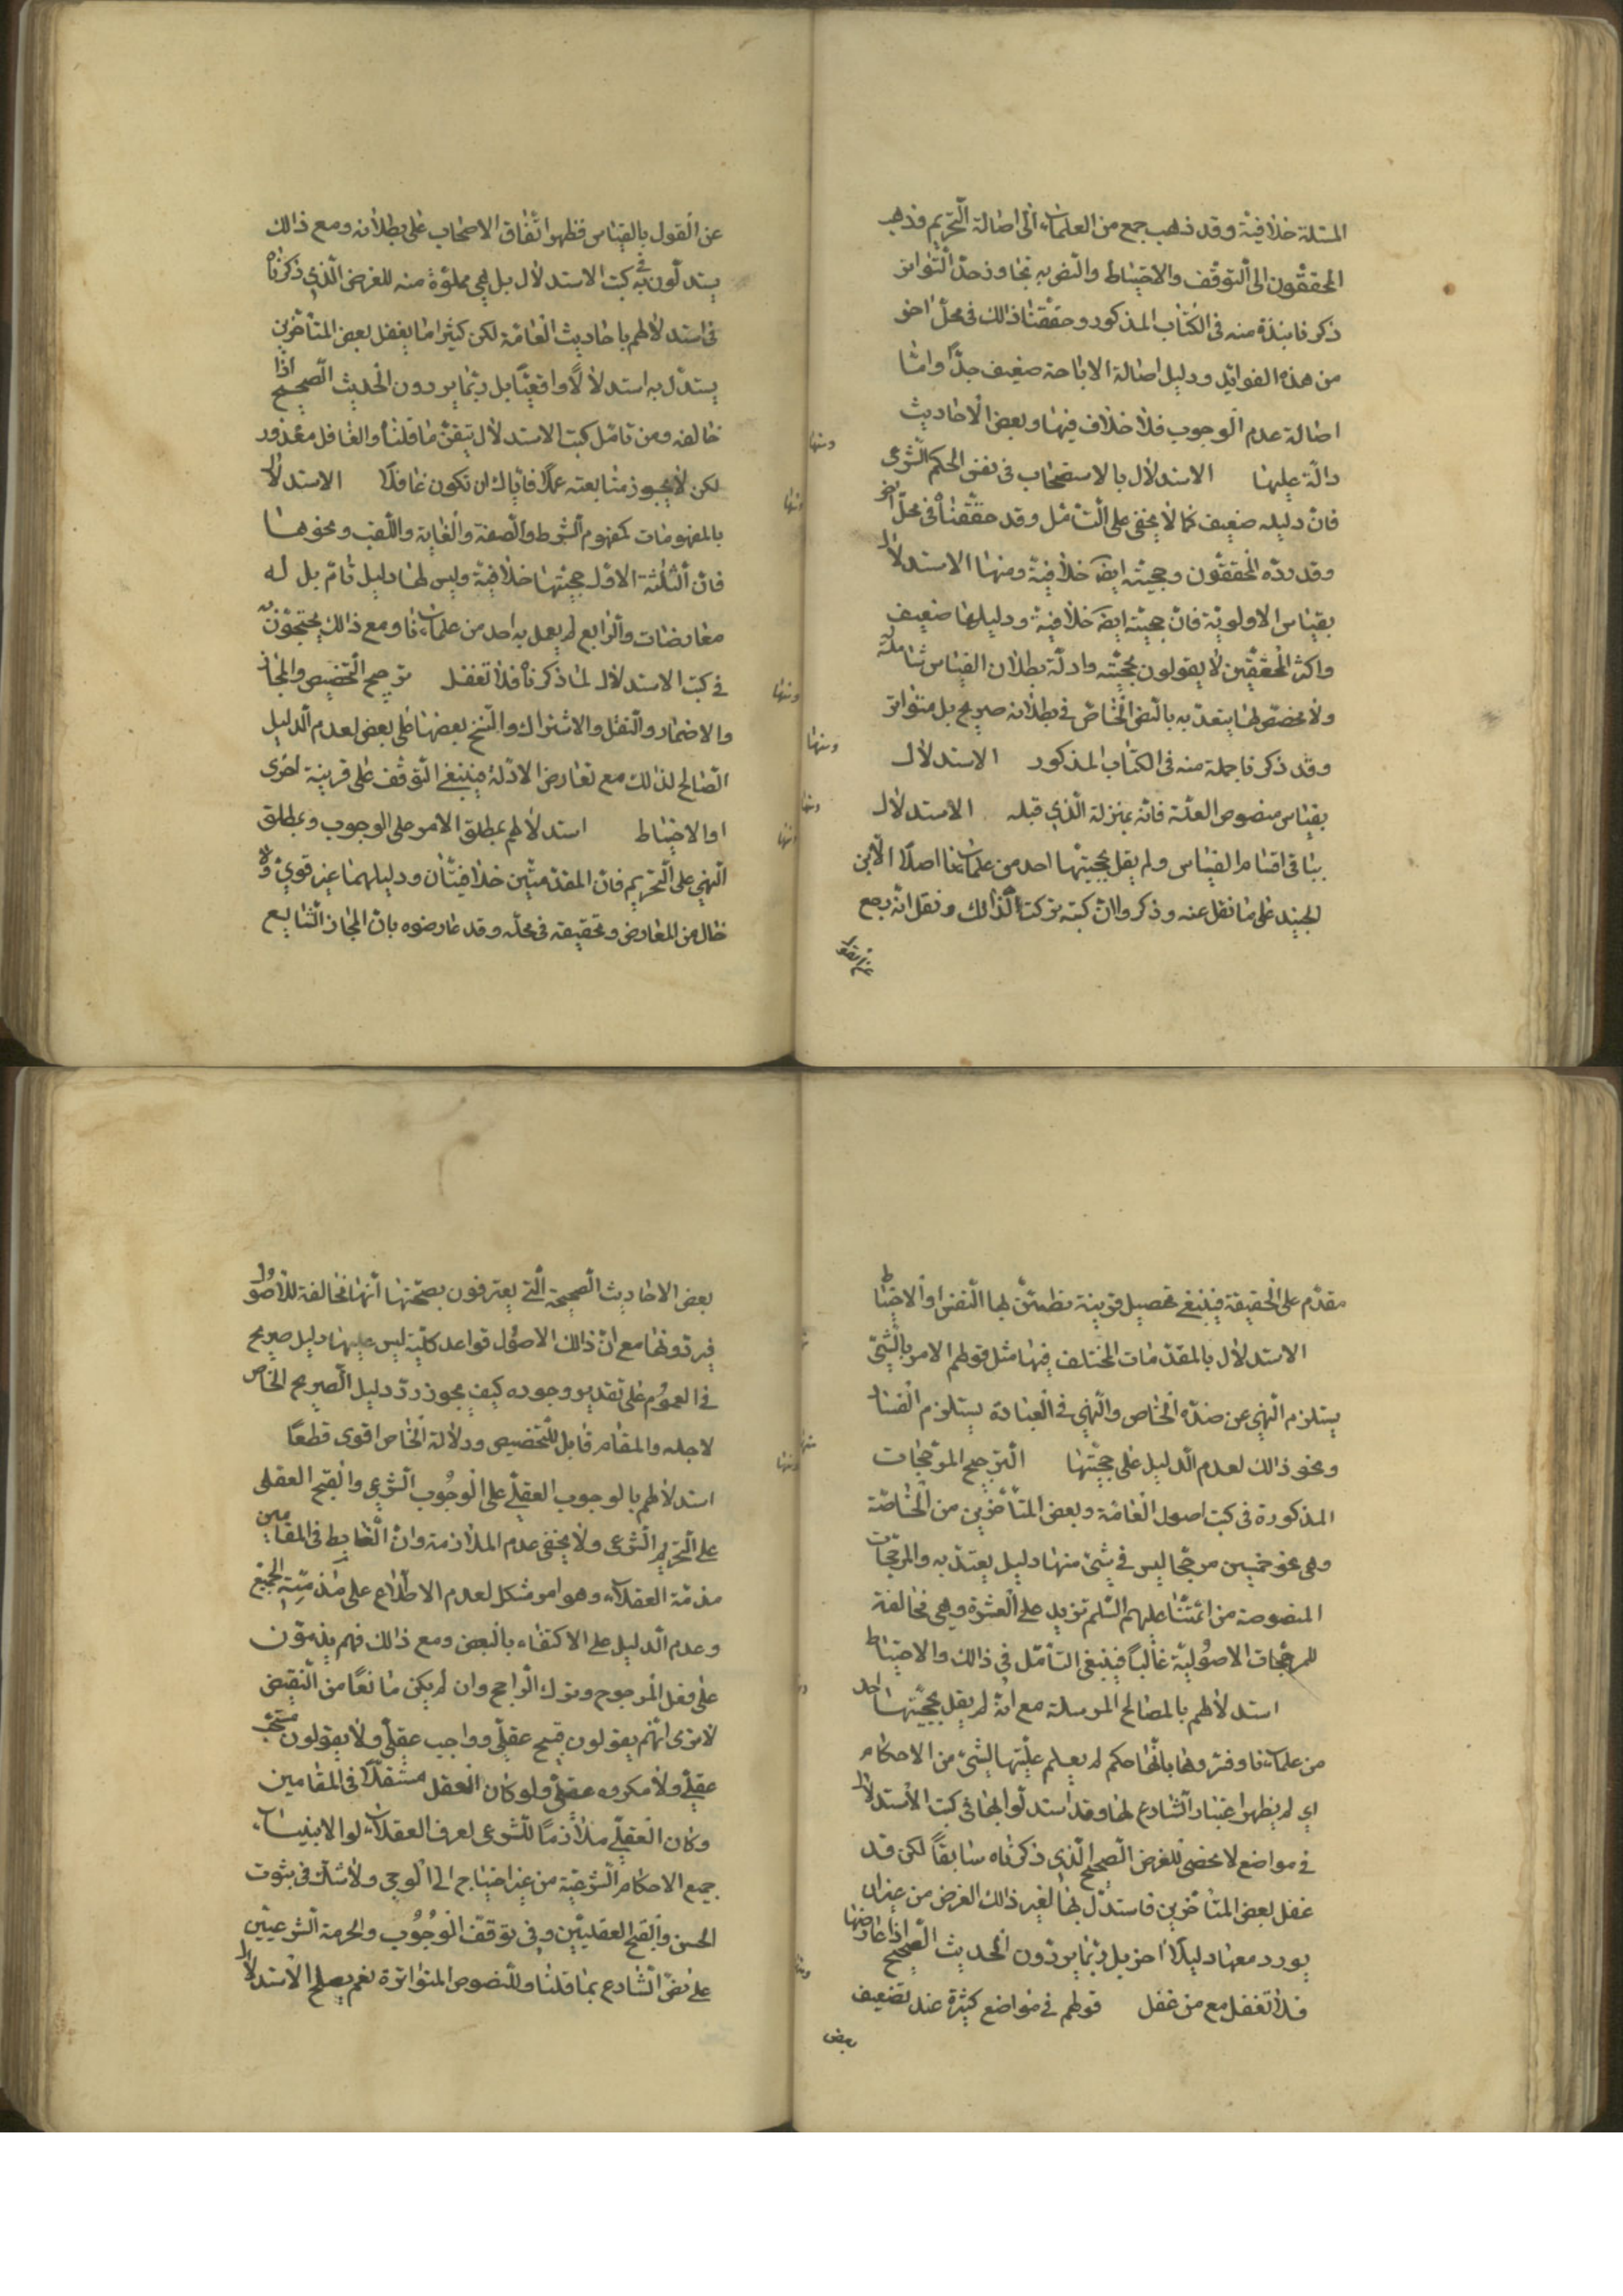 المسئلة خلافية وقد ذهب جمع من العلماء الى اصالة التحريم وذهب
المحققون الى التوقف والاحتياط والنص به تجاوز حد التواتر
ذكرنا نبذة منه فى الكتاب المذكور وحققنا ذالك فى محل اخر
من هذه الفوائد ودليل اصالة الاباحة ضعيف جدّاً وامّا
اصالة عدم الوجوب فلا خلاف فيها وبعض الاحاديث
دالّة عليها ومنها الاستدلال بالاستصحاب فى نفس الحكم الشرعى
فان دليله ضعيف كما لا يخفى على التأمل وقد حققناه فى محل اخر
وقد ردّه المحققون وحجيته ايضَ خلافية ومنها الاستدلال
بقياس الاولوية فان حجيته ايضَ خلافية ودليلها ضعيف
واكثر المحققين لا يقولون بحجيته وادلّة بطلان القياس شاملة له
ولا مخصّص لها يعتدّ به بالنص الخاصّ فى بطلانه صريح بل متواتر
وقد ذكرنا جملة منه فى الكتاب المذكور ومنها الاستدلال
بقياس منصوص العلّة فانّه بمنزلة الّذى قبله ومنها الاستدلال
بباقى اقسام القياس ولم يقل بحجيتها احد من علمائنا اصلاً الّا ابن
الجنيد على ما نقل عنه وذكروا انّ كتبه تركت لذالك ونقل انّه رجع
عن القول
عن القول بالقياس فظهر اتّفاق الاصحاب على بطلانه ومع ذالك
يستدلّون به فى كتب الاستدلال بل هى مملوّة منه للغرض الّذى ذكرناه
فى استدلالهم باحاديث العامّة لكن كثيراما يغفل بعض المتأخّرين
يستدلّ به استدلالاً واقعيّاً بل ربّما يردون الحديث الصحيح اذا
خالفه ومن تأمّل كتب الاستدلال تيقّن ما قلناه والغافل معذور
لكن لا يجوز متابعته عمداً فايّاك ان تكون غافلاً ومنها الاستدلال
بالمفهومات كمفهوم الشرط والصفة والغاية واللقب ونحوها
فان الثلثة الاول حجيتها خلافية وليس لها دليل تامّ بل له
معارضات والرابع لم يعمل به احد من علمائنا ومع ذالك يحتجّون به
فى كتب الاستدلال لما ذكرناه فلا تغفل ومنها ترجيح التخصيص والمجاز
والاضمار والنقل والاشتراك والنسخ بعضها على بعض لعدم الدليل
الصّالح لذلك مع تعارض الادلة فينبغى التوقف على قرينة اخرى
او الاحتياط ومنها استدلالهم بمطلق الامر على الوجوب وبمطلق
النّهى على التحريم فان المقدمتين خلافيتان ودليلهما غير قوىّ ولا
خال من المعارض وتحقيقه فى محلّه وقد عارضوه بان المجاز الشايع
مقدّم على الحقيقة فينبغى تحصيل قرينة تطمئنّ لها النفس او الاحتياط
ومنها الاستدلال بالمقدّمات المختلف فيها مثل قولهم الامر بالشئ
يستلزم النّهى عن ضدّه الخاص والنّهى فى العبادة يستلزم الفساد
ونحو ذالك لعدم الدليل على حجيّتها ومنها الترجيح المرجحات
المذكورة فى كتب اصول العامّة وبعض المتأخّرين من الخاصّة
وهى نحو خمسين مرجّحا ليس فى شئ منها دليل يعتدّ به والمرجحات
المنصوصة من ائمّتنا عليهم السّلم تزيد على العشرة وهى مخالفة
للمرجّحات الاصوليّة غالباً فينبغى التأمّل فى ذالك والاحتياط
ومنها استدلالهم بالمصالح المرسلة مع انّه لم يقل بحجيّتها احد
من علمائنا وفسّروها بانّها حكم لم يعلم علّيتها لشئ من الاحكام
اى لم يظهر اعتبار الشارع لها وقد استدلّوا بها فى كتب الاستدلال
فى مواضع لا تحصى للغرض الصّحيح الّذى ذكرناه سابقاً لكن قد
غفل بعض المتأخّرين فاستدلّ بها لغير ذالك الغرض من غير ان
يورد معها دليلاً اخر بل ربّما يردّون الحديث الصّحيح اذا عارضها
فلا تغفل مع من غفل ومنها قولهم فى مواضع كثيرة عند تضعيف
بعض
بعض الاحاديث الصحيحة الّتى يعترفون بصحّتها انّها مخالفة للاصول
فيردّونها مع انّ ذالك الاصول قواعد كليّة ليس عليها دليل صريح
فى العموم على تقدير وجوده كيف يجوز ردّ دليل الصريح الخاص
لاجله والمقام قابل للتخصيص ودلالة الخاص اقوى قطعاً
ومنها استدلالهم بالوجوب العقلّى على الوجوب الشرعى والقبح العقلى
على التحريم الشرعى ولا يخفى عدم الملازمة وانّ الضّابط فى المقامين
مذمّة العقلاء وهو امر مشكل لعدم الاطلاع على مذمّة الجميع
وعدم الدليل على الاكتفاء بالبعض ومع ذالك فهم يذمّون
على فعل المرجوح وترك الراجح وان لم يكن مانعاً من النقيض
الا ترى انّهم يقولون قبيح عقلّى وواجب عقلّى ولا يقولون مستحبّ
عقلّى ولا مكروه عقلّى ولو كان العقل مستقلّاً فى المقامين
وكان العقلّى ملازماً للشرعى لعرف العقلاء لولا الانبياء
جميع الاحكام الشرعيّة من غير احتياج الى الوحى ولا شكّ فى ثبوت
الحسن والقبح العقليّين وفى توقف الوجوب والحرمة الشرعيّين
على نصّ الشارع بما قلنا وللنصوص المتواترة نعم يصلح الاستدلال